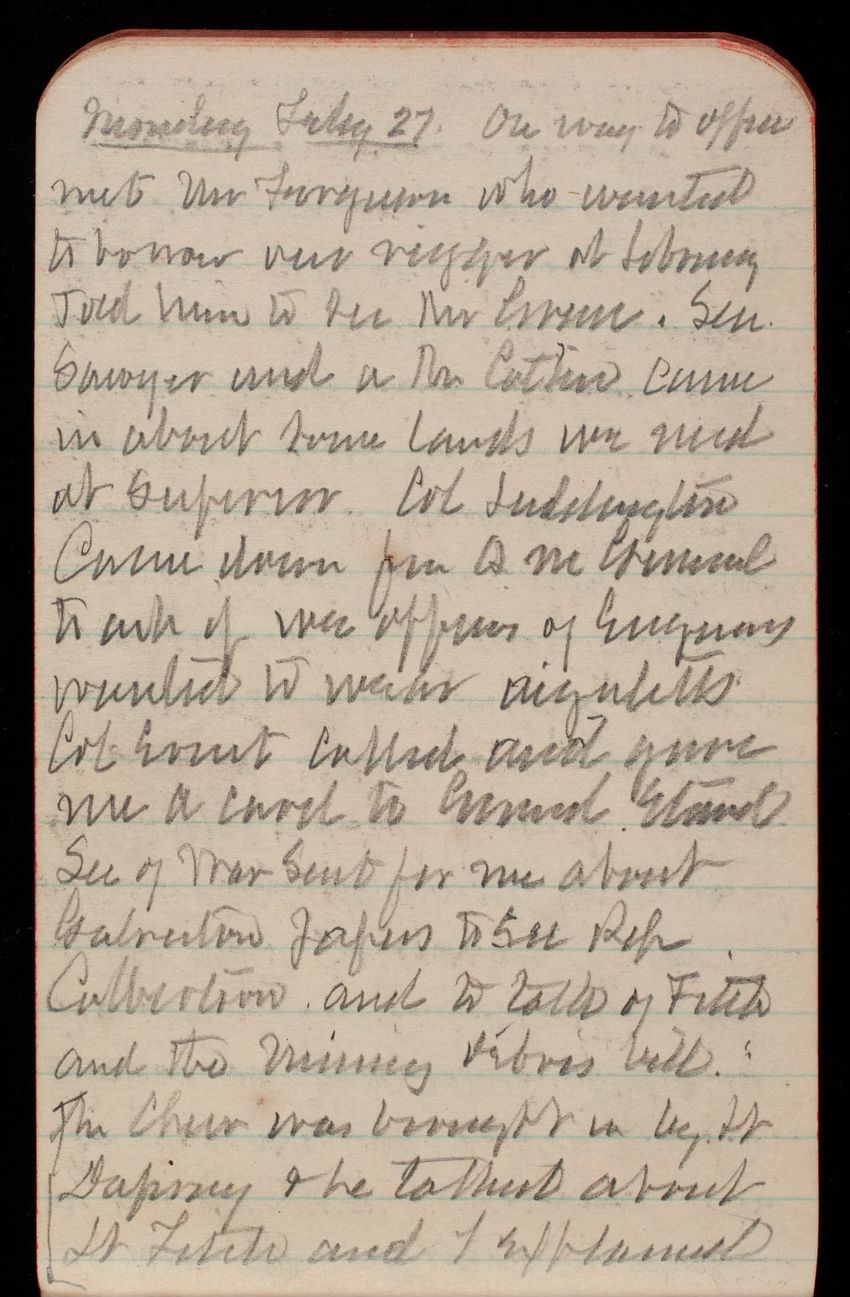 Monday Feby 27. On way to office
met Mr Ferguson who wanted
to borrow our rigger at
Told him to see Mr . Sen.
Sawyer and a Mr came
in about some lands we need
at Superior. Col Luddington
Came down from Q M General
to ask if we officers of Engineers
wanted to wear aiguletts
Col called and gave
me a card to
Sec of War Sent for me about
Galveston Papers to See Rep
Culbertson. and to talk of
and the Mining debris bill.
The was brought in by Lt
& he talked about
Lt and I explained